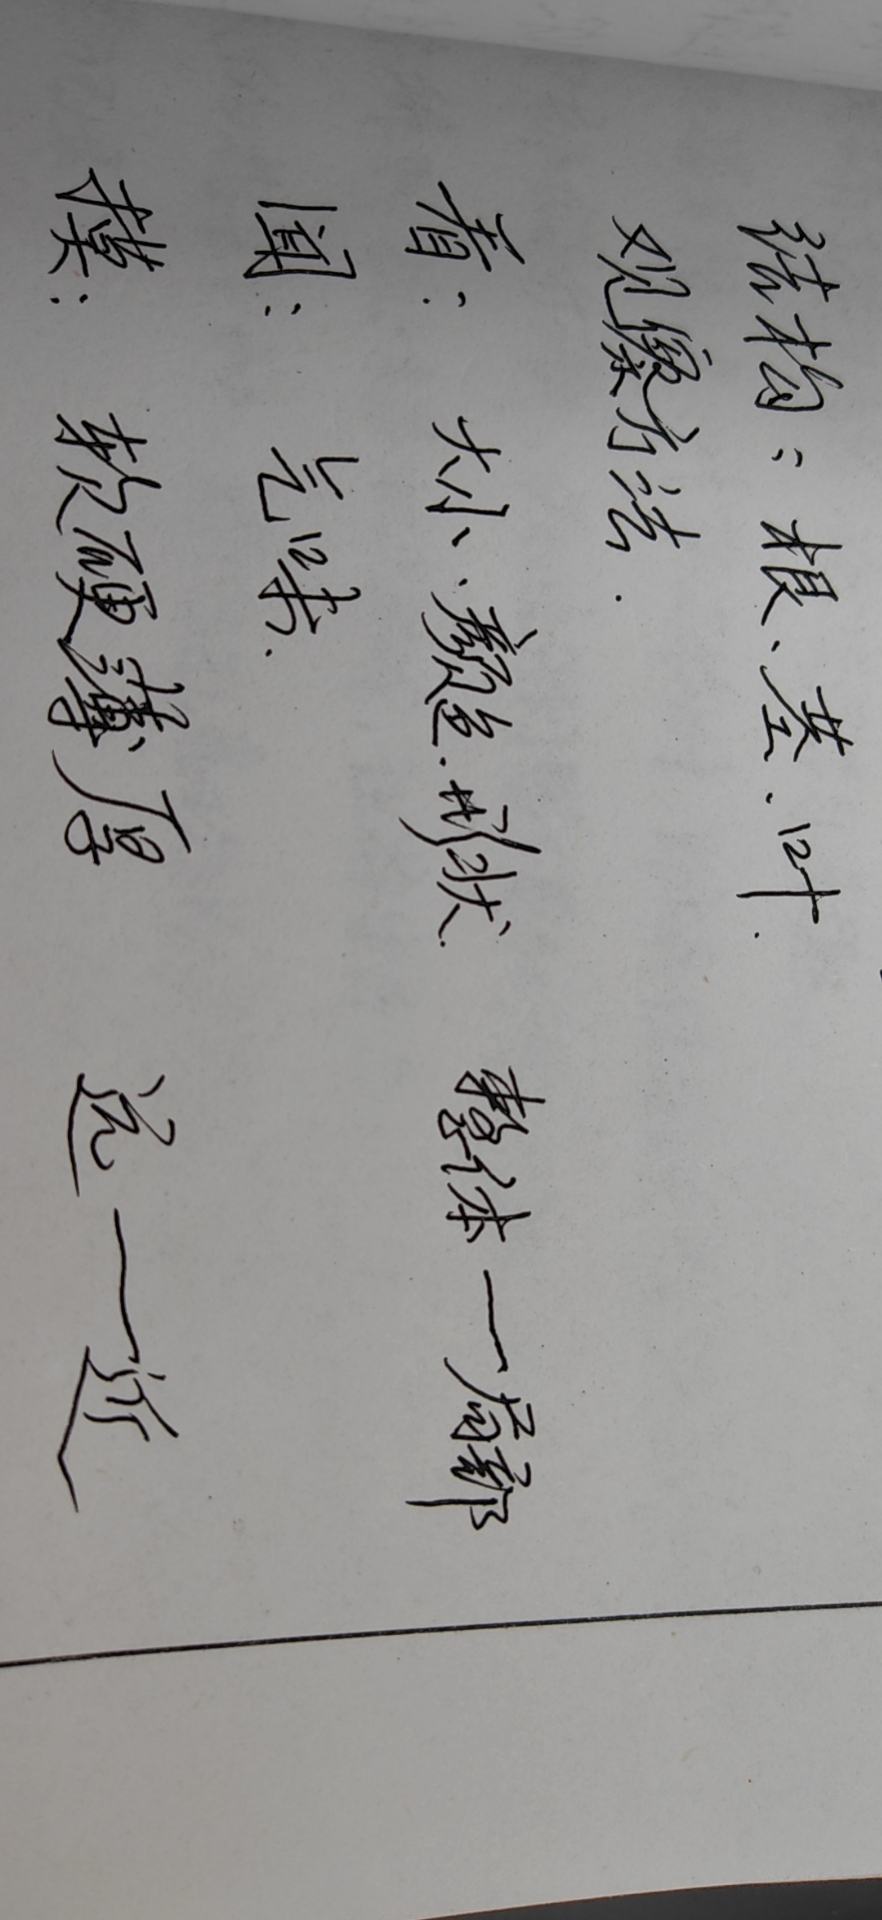 结构：根、茎、叶.
观察方法.
看：大小、颜色.形状. 整体一局部
闻：气味.
摸：软硬薄厚 远一近